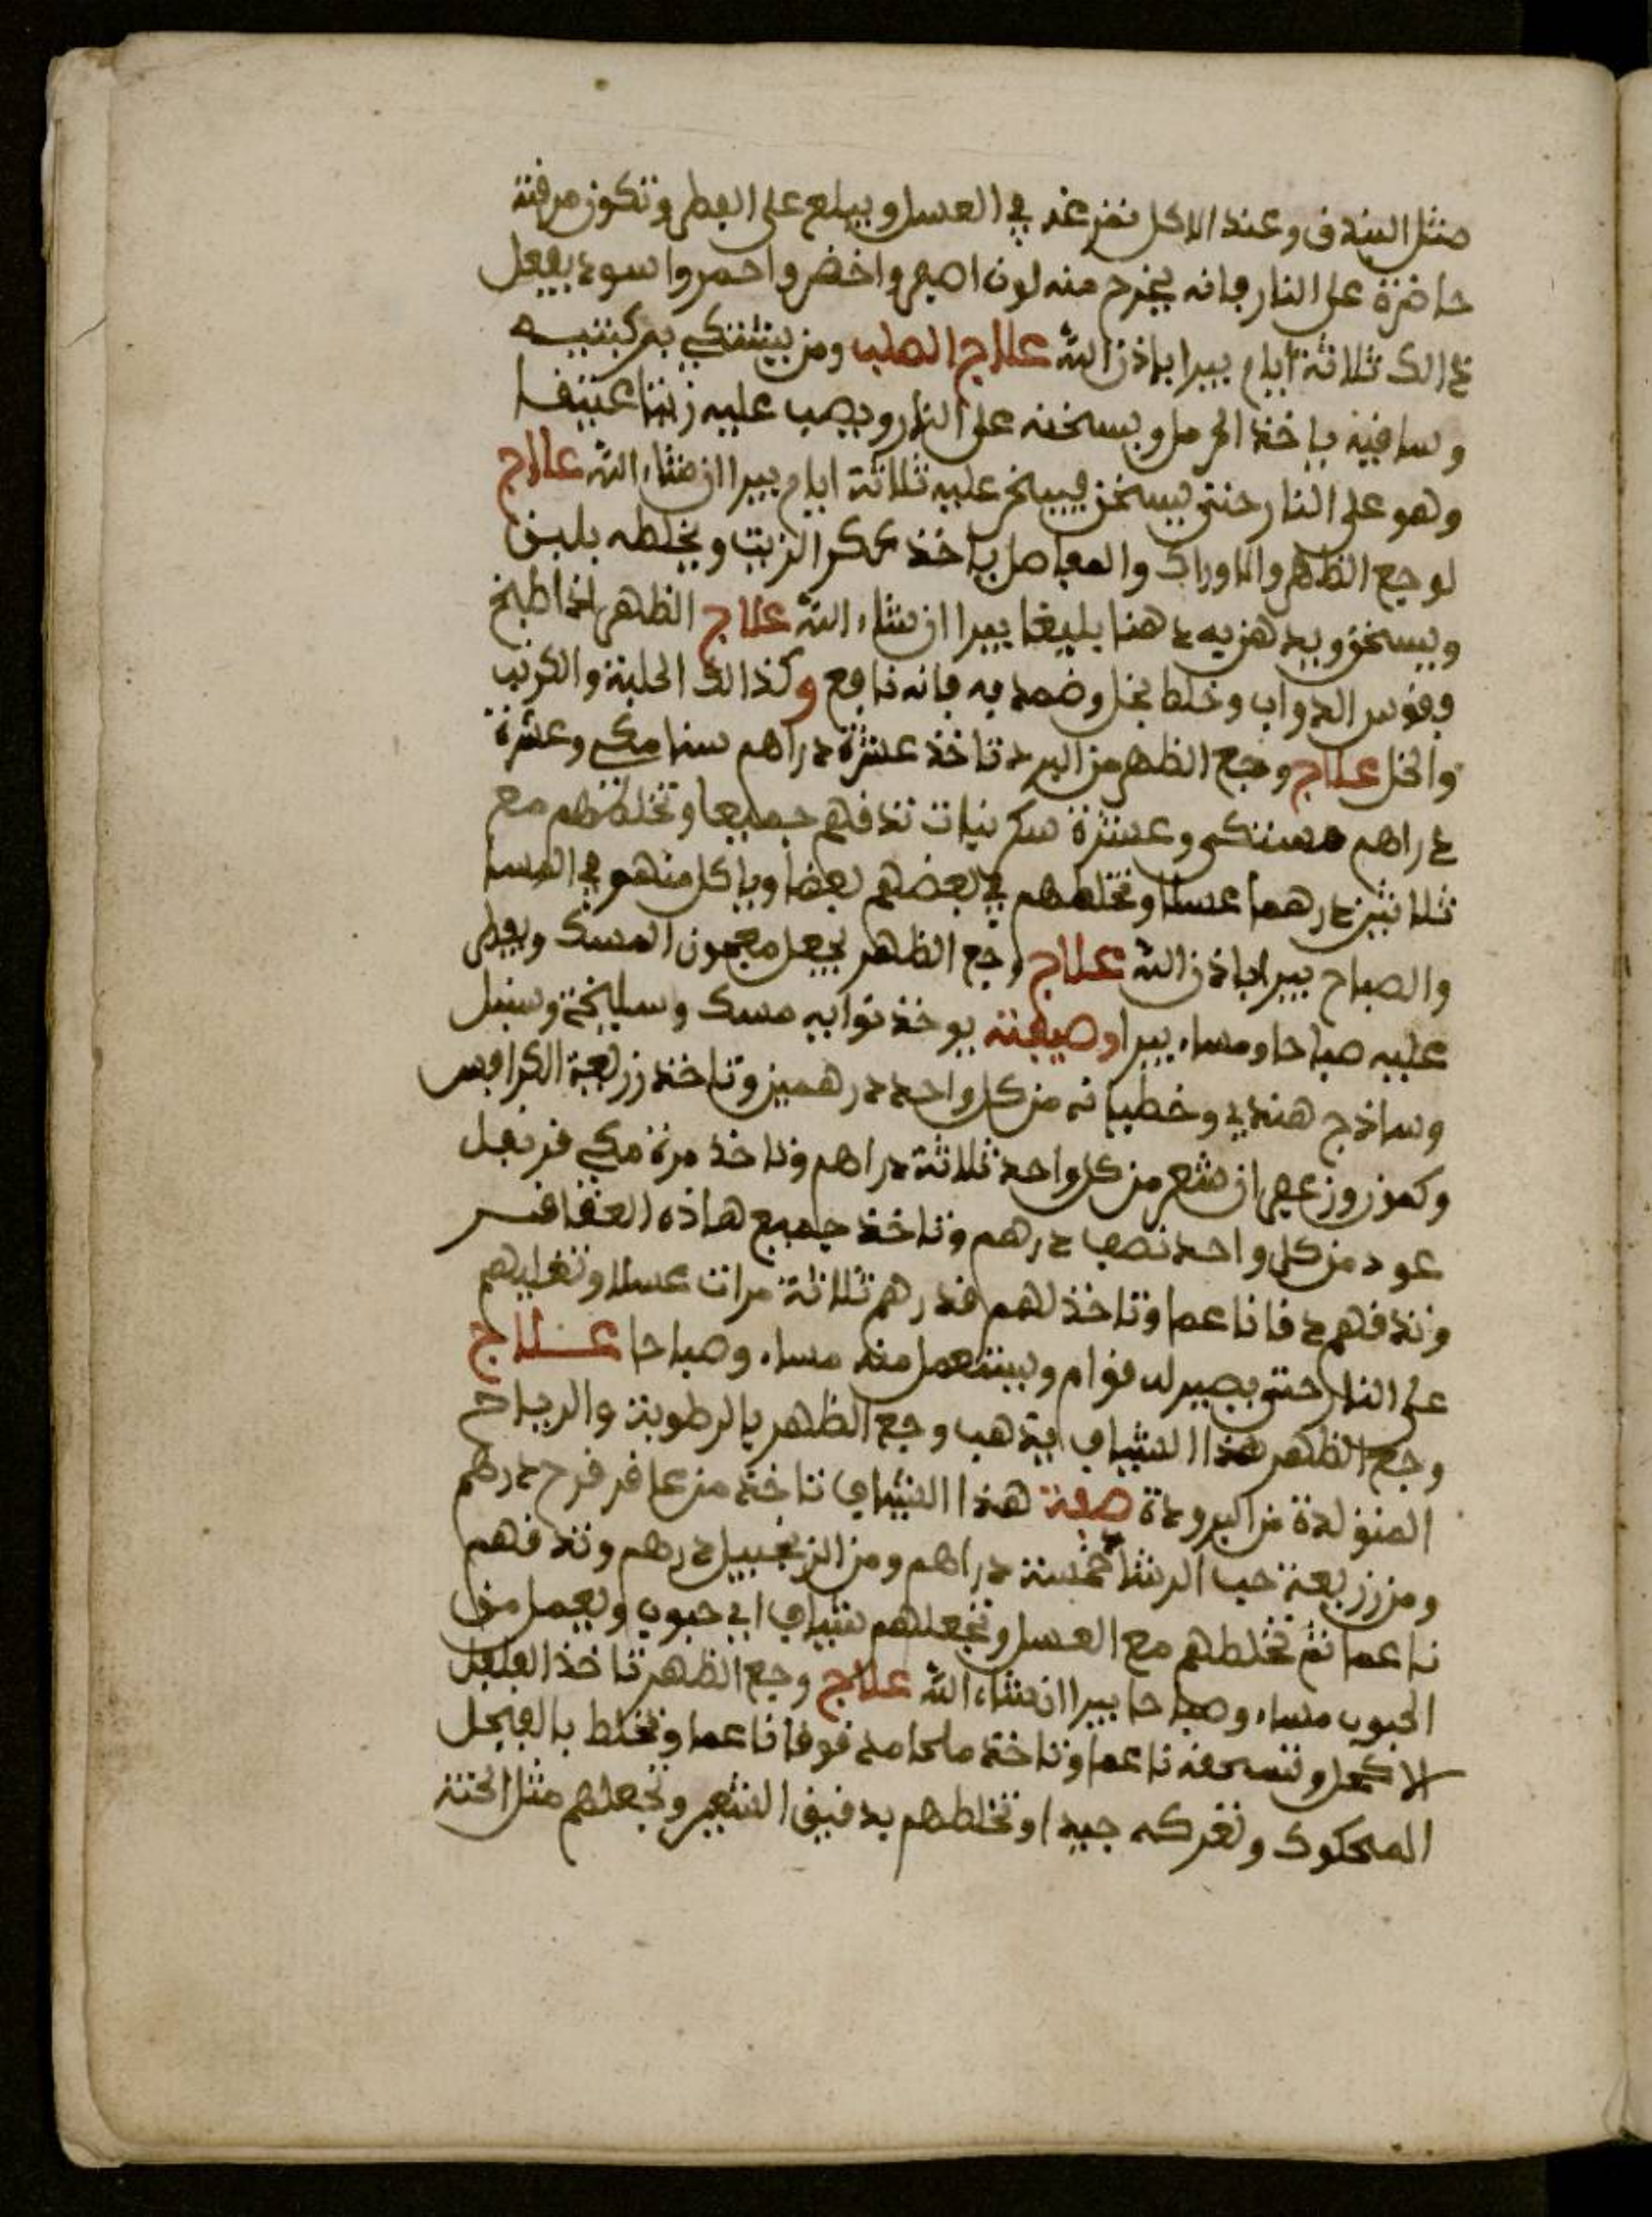 مثل البندق وعند الاكل تمرغه في العسل ويبلع على الفطر وتكون مرقة
حاضرة على النار فانه يخرج منه لون اصفر واخضر واحمر واسود يفعل
ذالك ثلاثة ايام يبرا باذن الله علاج الصلب ومن يشتكي بركبتيه
وساقيه ياخذ الحرمل ويسخنه على النار ويصب عليه زيتا عتيقا
وهو على النار حتى يسخن فيبخر عليه ثلاثة ايام يبرا ان شاء الله علاج
لوجع الظهر والاوراك والمفاصل ياخذ عكر الزيت ويخلطه بلبن
ويسخن ويدهن به دهنا بليغا يبرا ان شاء الله علاج الظهر اذا طبخ
وقوس الدواب وخلط بخل وضمد به فانه نافع وكذالك الحلبة والكرنب
والخل علاج وجع الظهر من البرد تاخذ عشرة دراهم سنا مكي وعشرة
دراهم مستكى وعشرة سكر نبات تدقهم جميعا وتخلطهم مع
ثلاثين درهما عسلا وتخلطهم في بعضهم بعضا وياكل منهو في المسا
والصباح يبرا باذن الله علاج وجع الظهر يجعل معجون المسك ويفطر
عليه صباحا ومساء يبرا وصيفته يوخذ نوابه مسك وسليخة وسنبل
وساذج هندي وخطيانه من كل واحد درهمين وتاخذ زريعة الكرافس
وكمون وزعفران شعر من كل واحد ثلاثة دراهم وتاخذ مرة مكي قرنفل
عود من كل واحد نصف درهم وتاخذ جميع هاذه العقاقر
وتدقهم دقا ناعما وتاخذ لهم قدرهم ثلاثة مرات عسلا وتغليهم
على النار حتى يصير له قوام ويستعمل منه مساء وصباحا علاج
وجع الظهر هذا الشياف يذهب وجع الظهر بالرطوبة والرياح
المتولدة من البرودة صفة هذا الشياف تاخذ من عاقر قرح درهم
ومن زريعة حب الرشا خمسة دراهم ومن الزنجبيل درهم وتدقهم
ناعما ثم تخلطهم مع العسل وتجعلهم شياف اي حبوب ويعمل من
الحبوب مساء وصباحا يبرا ان شاء الله علاج وجع الظهر تاخذ الفلفل
الاكحل وتسحقه ناعما وتاخذ ملحا مدقوقا ناعما وتخلط بالفجل
المحكوك وتفركه جيدا وتخلطهم بدقيق الشعير وتجعلهم مثل الختة